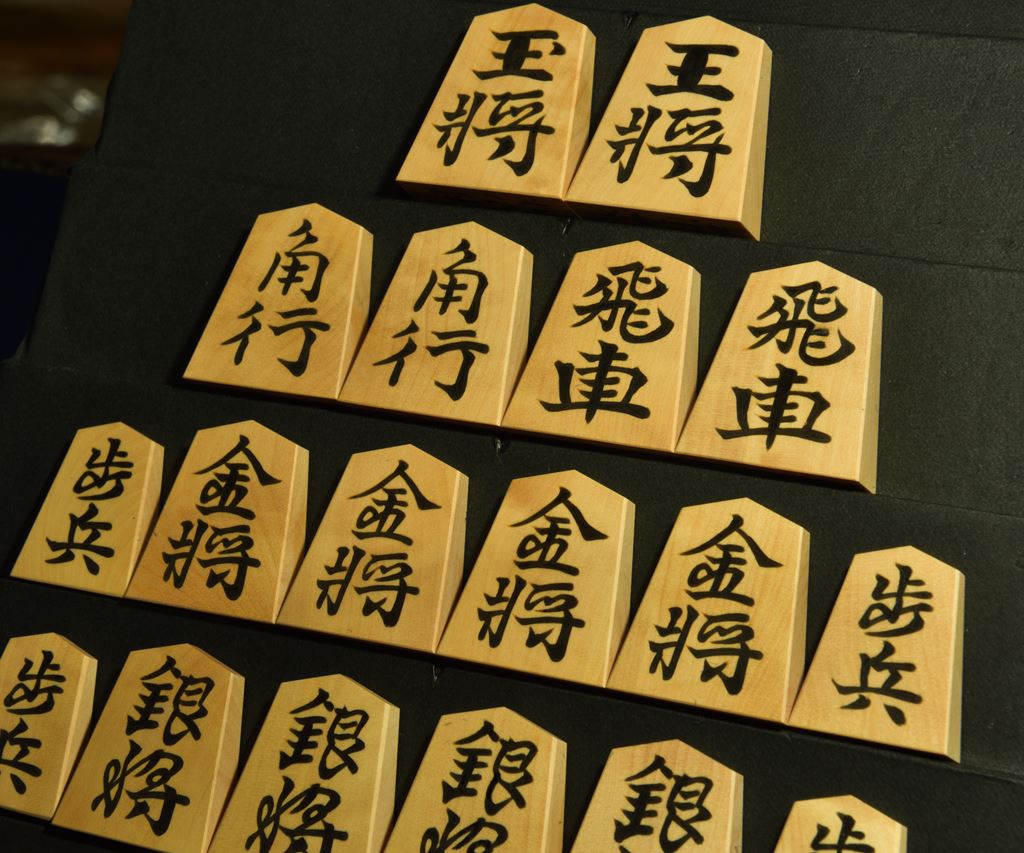 玉将 王将
角行 角行 飛車 飛車
歩兵 金将 金将 金将 金将 歩兵
歩兵 銀将 銀将 銀将 銀 歩